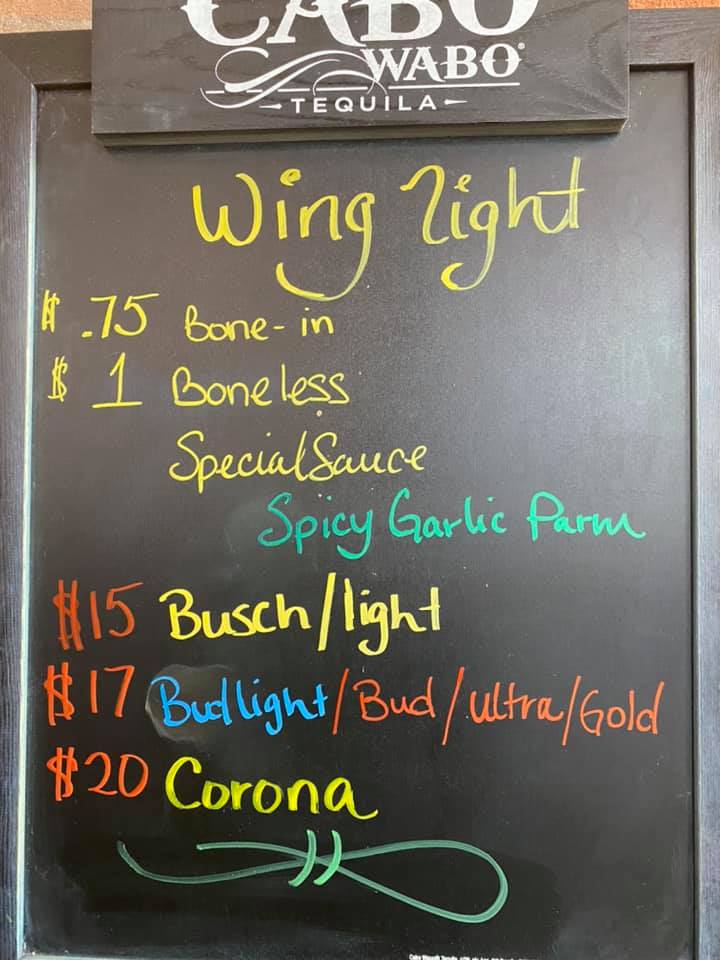 CABO
WABO®
TEQUILA
Wing Night
$ .75 Bone-in
$ 1 Boneless
Special Sauce
Spicy Garlic Parm
$15 Busch/light
$17 Budlight/Bud/Ultra/Gold
$20 Corona